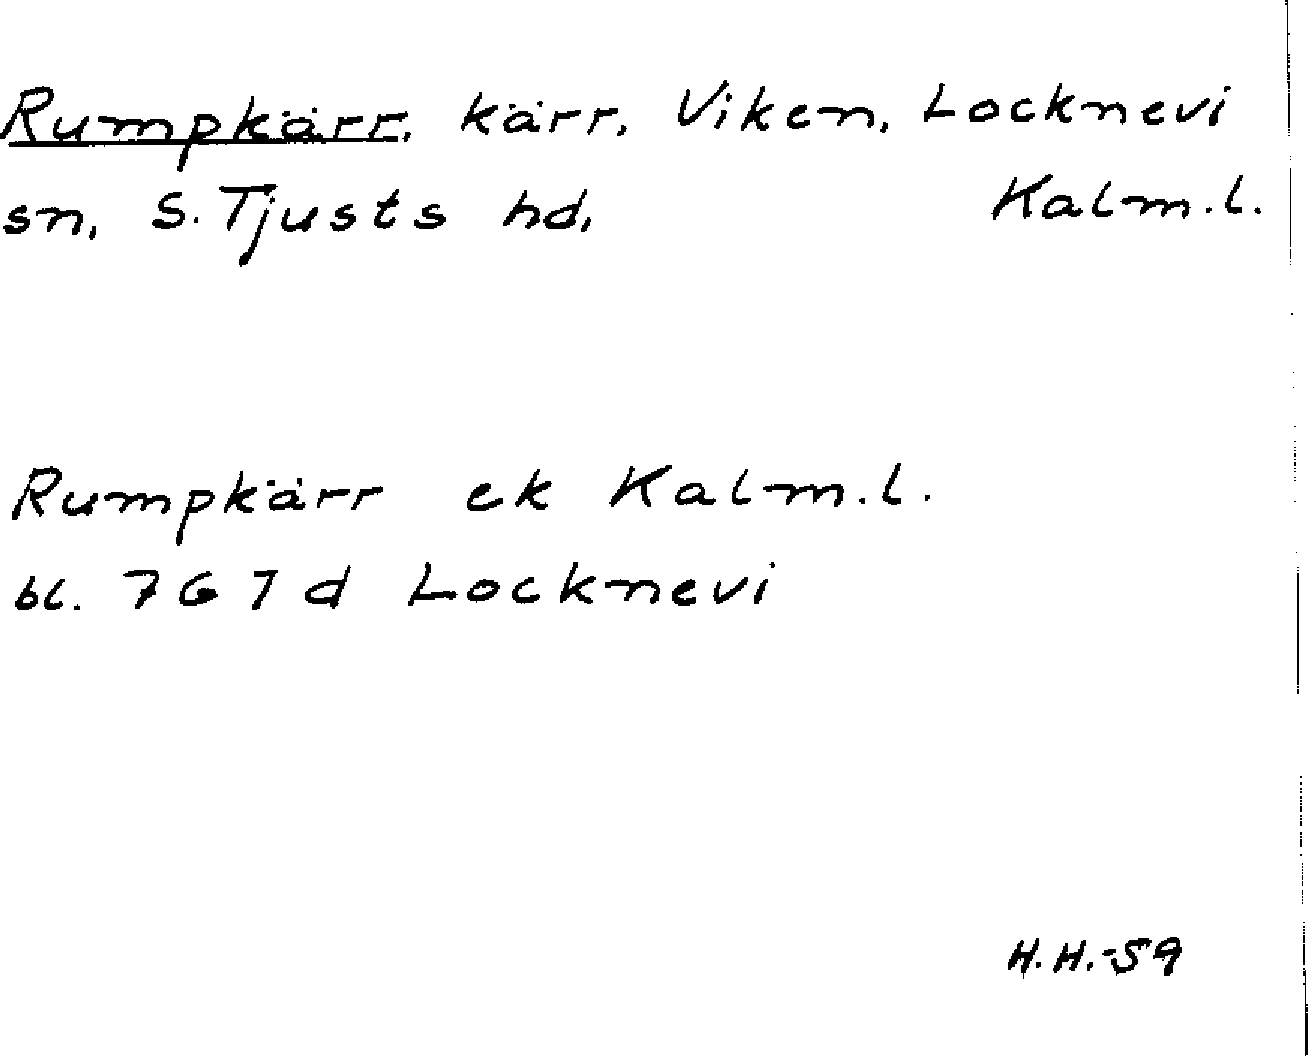 Rumpkärr, kärr, Viken, Locknevi
sn, S. Tjusts hd, Kalm.l.
Rumpkärr ek Kalm.l.
bl. 7G7d Locknevi
H.H.-59